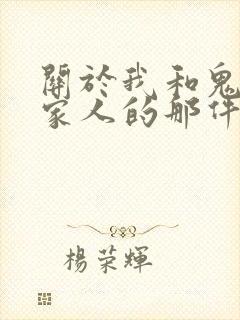 關於我和鬼
家人的那件
楊榮輝